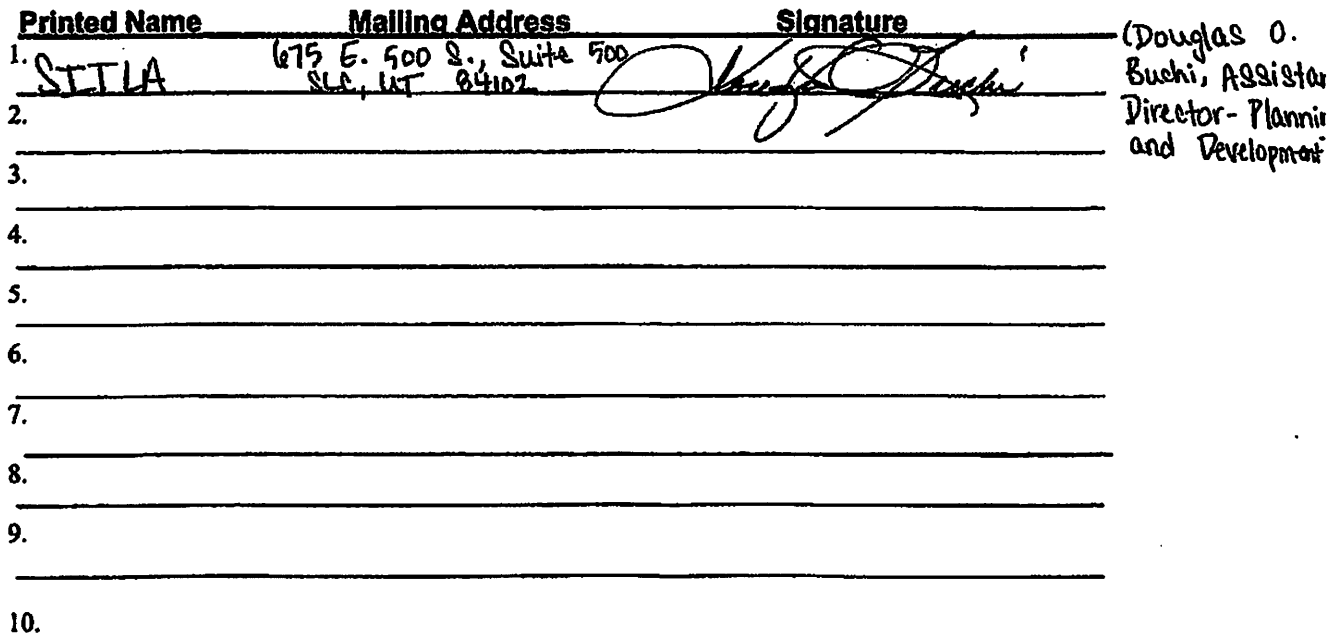 Printed Name Mailing Address Signature
1. SITLA 675 E. 500 S., Suite 500
SLC, UT 84102
(Douglas O.
Buchi, Assistan
Director- Plannin
and Development
2.
3.
4.
5.
6.
7.
8.
9.
10.